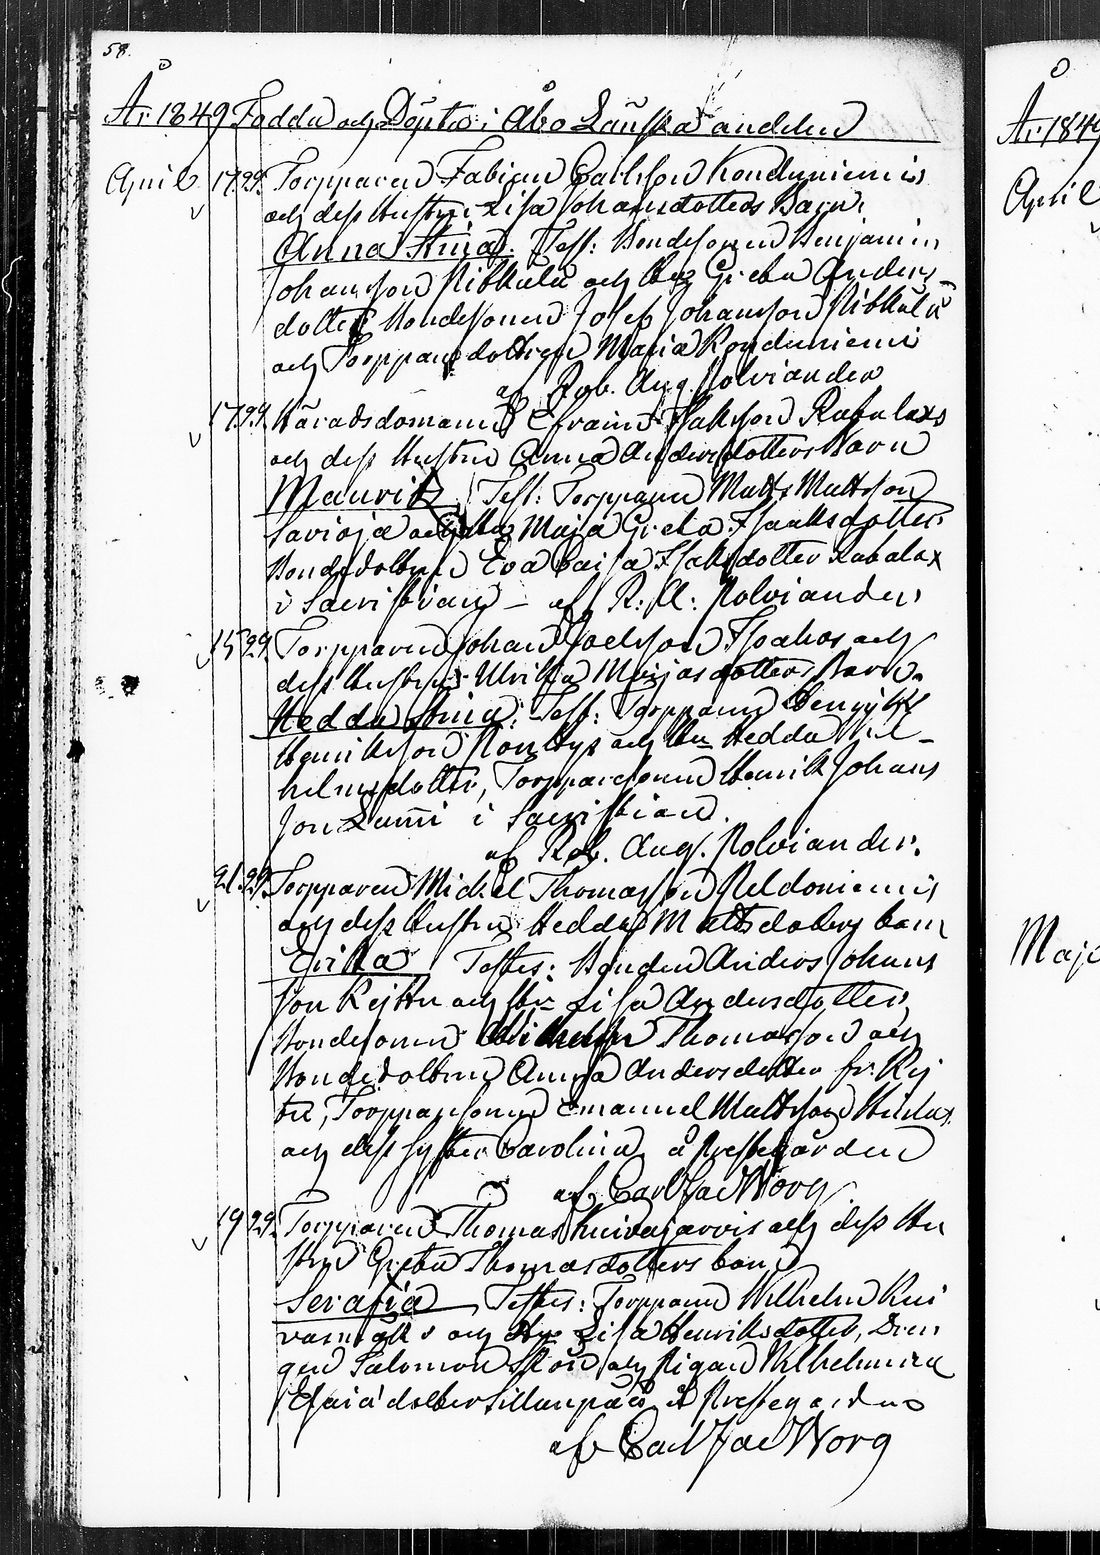 58.
År 1849 Födda och Döpta i Åbo Länska andelen
April 17 29. Torpparen Fabian Carlsson Konduniemis
och dess Hustru Lisa Johansdotters Barn
Anna Stina. Test: Bondesonen Benjamin
Johansson och Hu Greta Anders-
dotter Bondesonen Josef Johansson
och Torpparedottren Maria Konduniemi
af Rob. Aug. Polviander
17 29. Häradsdomaren Efraim Isaksson Rabalaxs
och dess Hustru Anna Andersdotters Barn
Maurits Test: Torpparen Matts Mattsson
Savioja och Hu Maja Greta Isaaksdotter
Bondedottren Eva Caisa Isaksdotter Rabalax
i Sacristian – af R: A: Polviander
15 29. Torpparen Johan Joelsson Isoahos och
dess Hustru Ulrika Mariasdotters Barn
Hedda Stina. Test: Torpparen
Henriksson och Hu Hedda Vil-
helmsdotter, Torparesonen Henrik Johans
son Lami i Sacristian.
af Rob. Aug. Polviander.
21. 29. Torpparen Michel Thomasson Peldoniemis
och dess Hustru Hedda Mattsdoters barn
Erika Testes: Bonden Anders Johans
son Rejttu och Hu Lisa Andersdotter
Bondesonen Wilhelm Thomasson och
Bondedottren Anna Andersdotter fr. Rej
tu, Torpparesonen Emanuel Mattsson
och dess syster Carolina å Prestegården
af Carl Jac Worg
19 29. Torpparen Thomas Kuivasjärvis och dess Hu
stru Greta Thomasdotters barn
Serafia Testes: Torpparen Wilhelm Kui
vasmäki och Hu Lisa Henriksdotter, Dren
gen Salomon Skön och Pigan Wilhelmina
Esaiædotter Sillanpää å Prestegården
af Carl Jac Worg
År 1849
April
Maji